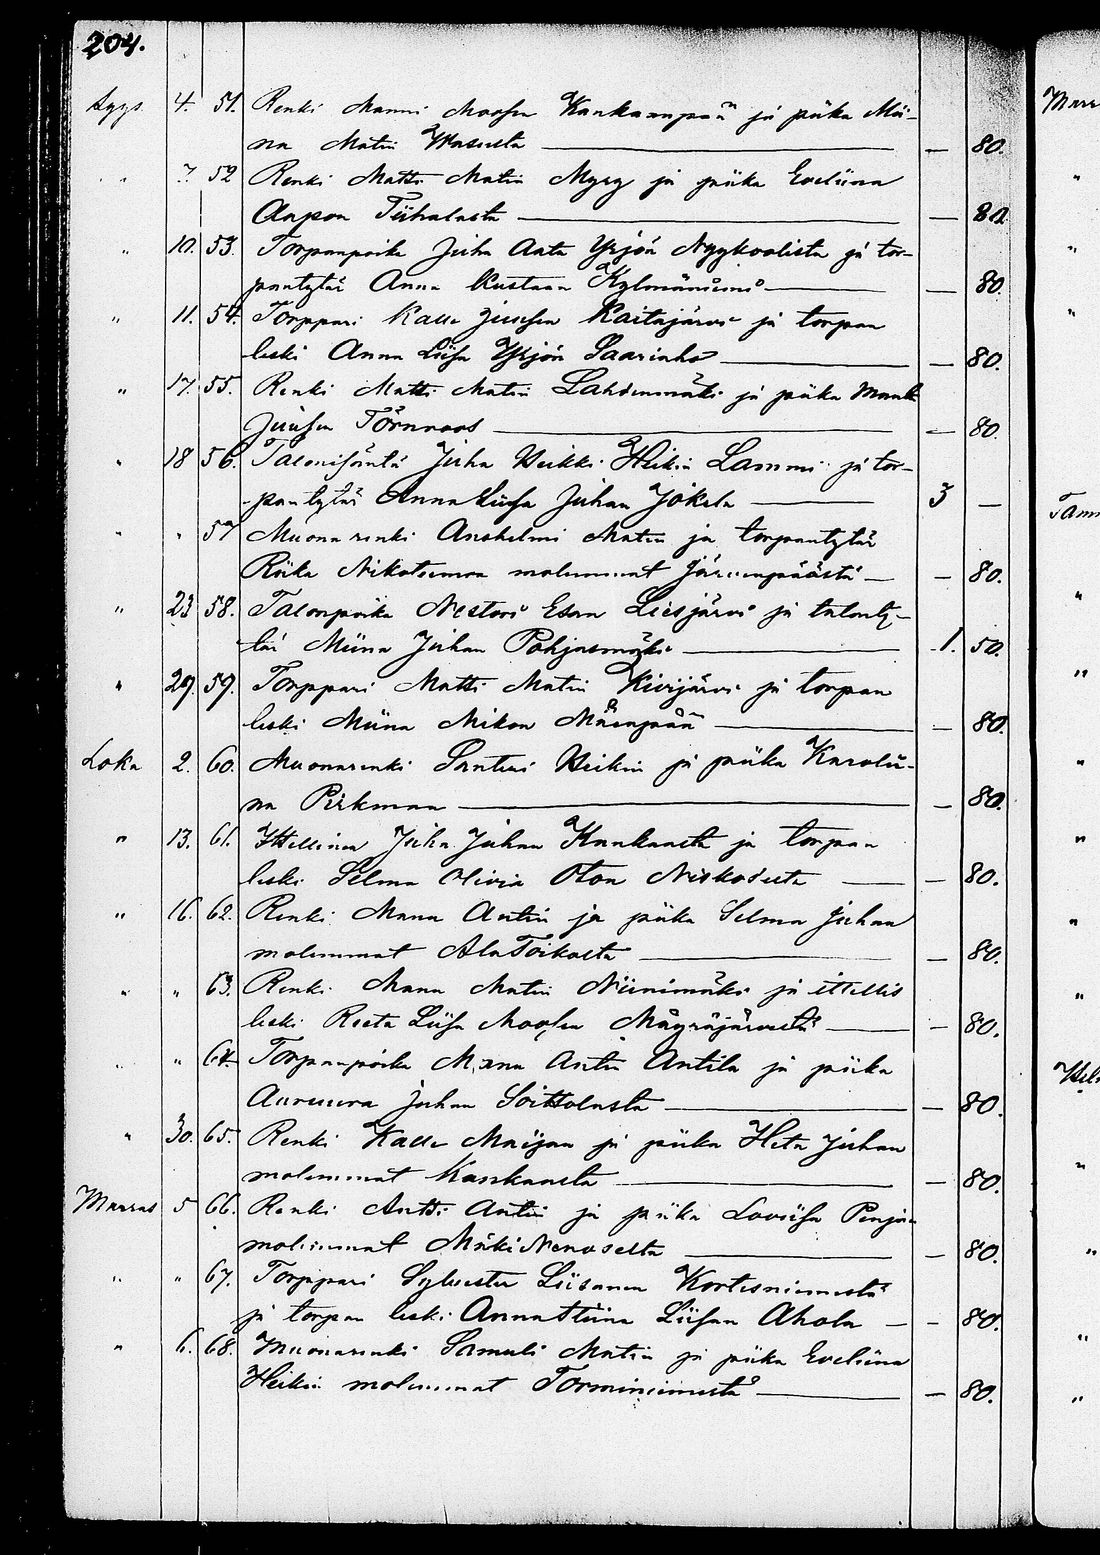 204.
Syys 4. 51. Renki Manni Moosen Kankaanpää ja piika Mii-
na Matin Wasusta — 80.
" 7. 52 Renki Matti Matin Myry ja piika Eveliina
Aapon Tiihalasta — 80.
" 10. 53. Torpanpoika Juha Anta Yrjön Nyykoolista ja tor-
pantytär Anna Kustaan Kylmäniemi — 80.
" 11. 54. Torppari Kalle Juusen Kaitajärvi ja torpan
leski Anna Liisa Yrjön Saarinho — 80.
" 17. 55. Renki Matti Matin Lahdenmäki ja piika
Juusen Törnroos — 80.
" 18 56. Talonisäntä Juha Heikki Heikin Lammi ja tor-
pantytär Anna Liisa Juhan Jokela 3 —
" " 57 Muonarenki Anshelmi Matin ja torpantytär
Riika Nikotemon molemmat Järvenpäästä — 80.
" 23 58. Talonpoika Nestori Esan Liesjärvi ja talonty-
tär Miina Juhan Pohjasmäki 1. 50.
" 29. 59. Torppari Matti Matin Kivijärvi ja torpan
leski Miina Mikon Mäenpään — 80.
Loka 2. 60. Muonarenki Santeri Heikin ja piika Karolii-
na Pirkman — 80.
" 13. 61. Itsellinen Juha Juhan Kankaasta ja torpan
leski Selma Olivia Oton Niskosesta — 80.
" 16. 62. Renki Manu Antin ja piika Selma Juhan
molemmat AlaToikosta — 80.
" " 63. Renki Manu Matin Niinimäki ja itsellis
leski Reeta Liisa Moosen Mäyräjärvestä — 80.
" " 64. Torpanpoika Manu Antin Antila ja piika
Auruura Juhan Soittolasta — 80.
" 30. 65. Renki Kalle Maijan ja piika Heta Juhan
molemmat Kankaasta — 80.
Marras 5 66. Renki Antti Antin ja piika Loviisa Penja-
molemmat MäkiNevoselta — 80.
" " 67. Torppari Sylvester Liisanen Kortesniemestä
ja torpan leski AnnaStiina Liisan Ahola — 80.
" 6. 68. Muonarenki Samuli Matin ja piika Eveliina
Heikin molemmat Torminiemestä — 80.